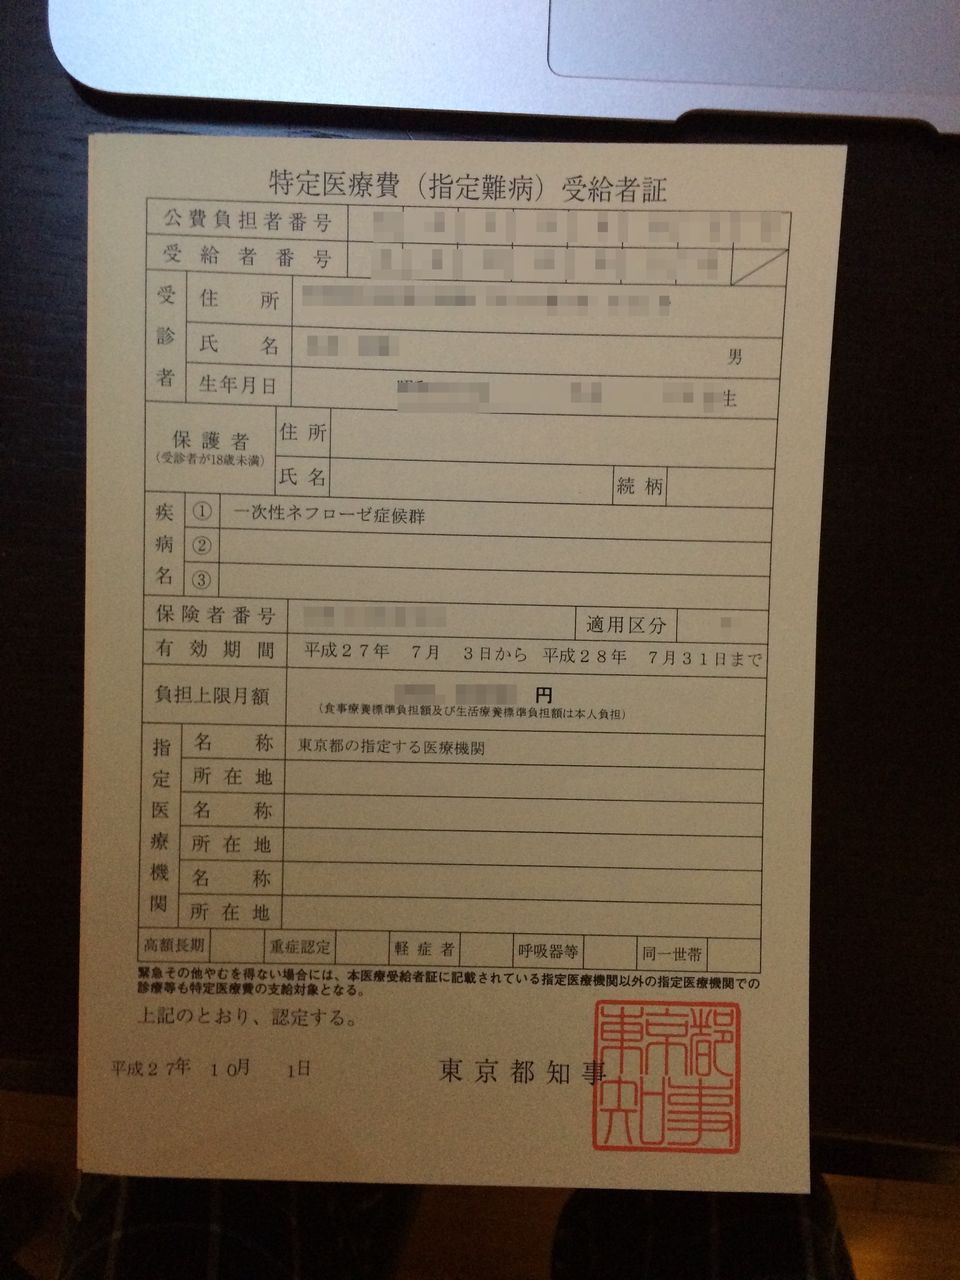 特定医療費（指定難病）受給者証
公費負担者番号
受給者番号
受診者
住所
氏名 男
生年月日 生
保護者
（受診者が18歳未満）
住所
氏名 続柄
疾病名
① 一次性ネフローゼ症候群
②
③
保険者番号 適用区分
有効期間 平成２７年 ７月 ３日から 平成２８年 ７月３１日まで
負担上限月額 円
（食事療養標準負担額及び生活療養標準負担額は本人負担）
指定医療機関
名称 東京都の指定する医療機関
所在地
名称
所在地
名称
所在地
高額長期 重症認定 軽症者 呼吸器等 同一世帯
緊急その他やむを得ない場合には、本医療受給者証に記載されている指定医療機関以外の指定医療機関での
診療等も特定医療費の支給対象となる。
上記のとおり、認定する。
平成２７年 １０月 １日 東京都知事
東京都
知事